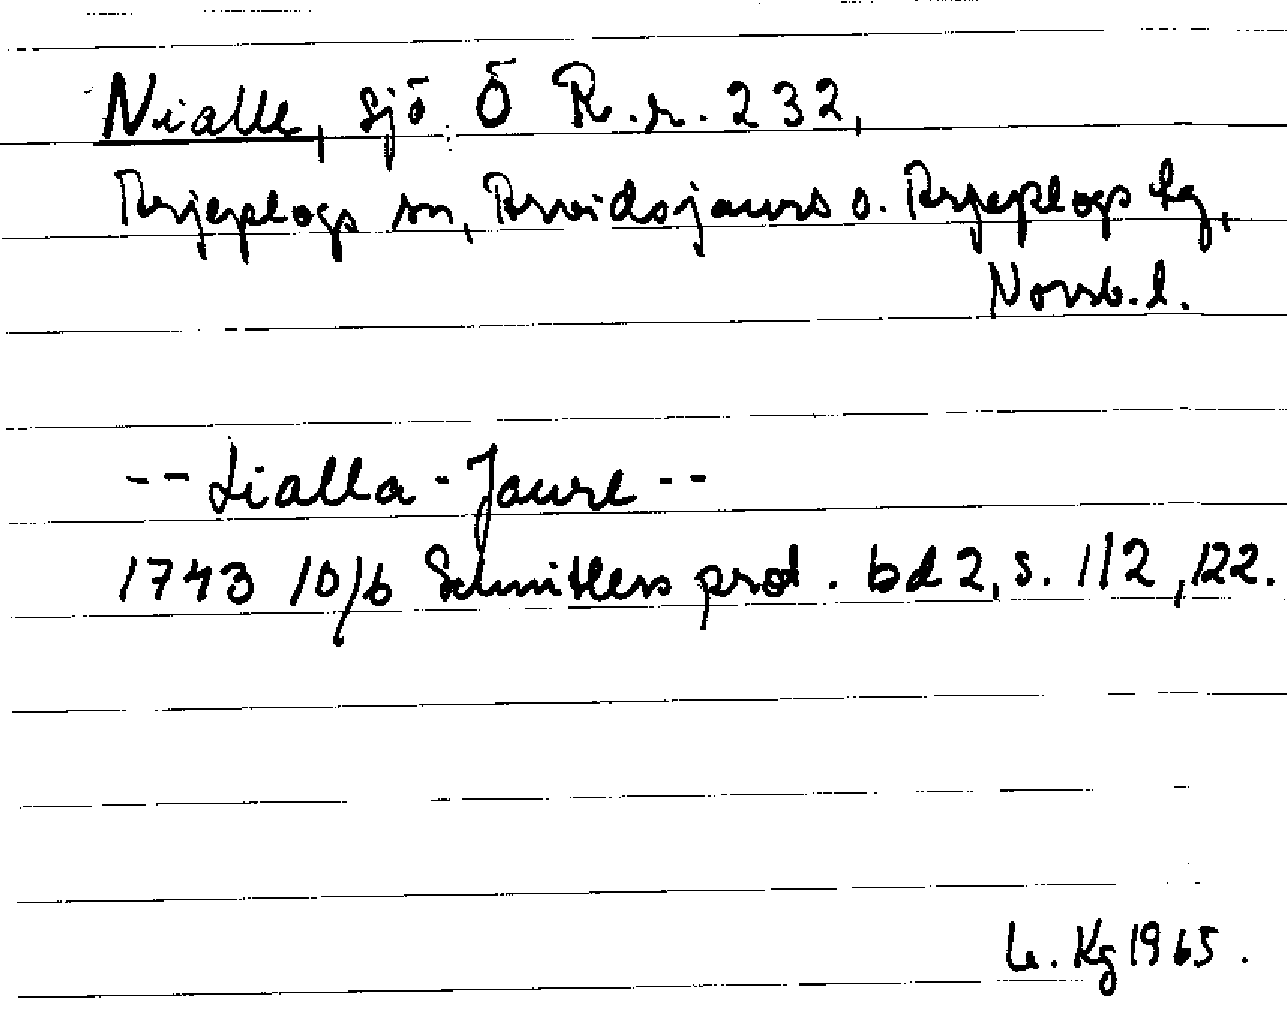 Nialle, sjö Ö R.r. 232,
Arjeplogs sn, Arvidsjaurs o. Arjeplogs lg,
Norrb. l.
-- Lialla - Jaure --
1743 10/6 Schnitlers prot. bd 2, s. 112, 122.
Kg 1965.